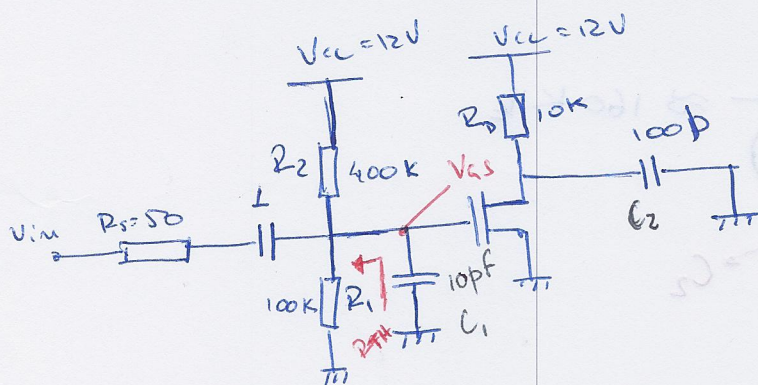 Vcc=12V
Vcc=12V
RD
10K
100p
R2
400K
VGS
C2
Vin
Rs=50
1
100K
R1
RTH
10pF
C1
C2